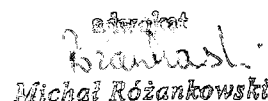 adwokat
Michał Różankowski